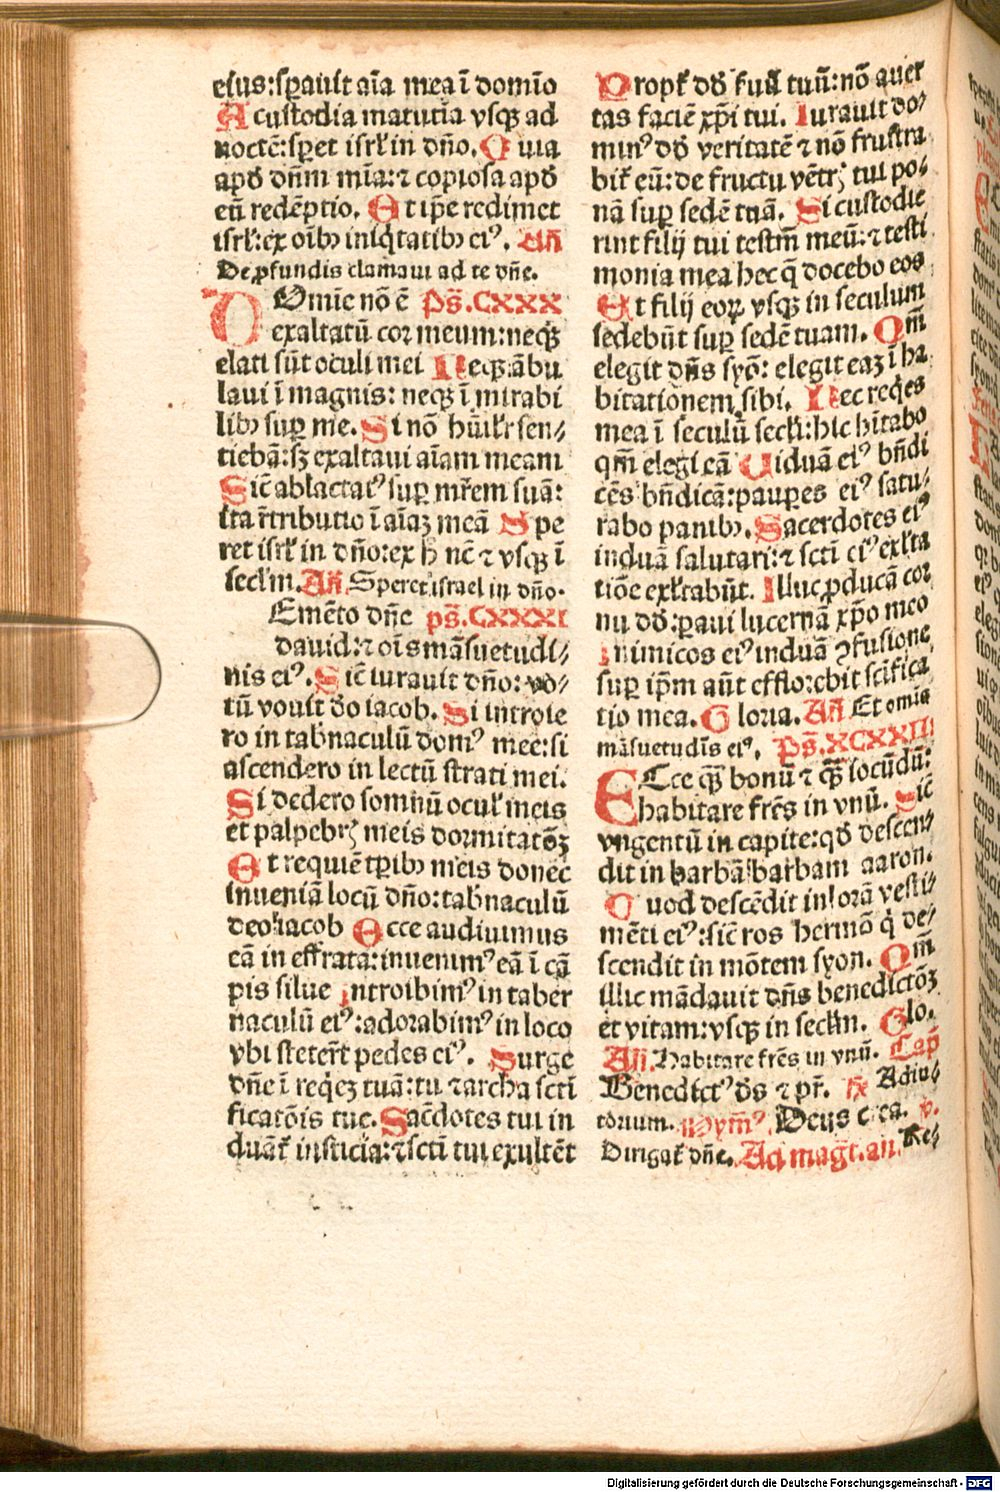 eius:sperauit aīa mea ī domīo
A custodia matutīa vsqꝫ ad
noctē:speret isrl' in dño. Q uia
apd' dñm mīa:⁊ copiosa apd'
eū redēptio. Et ip̄e redimet
isrl':ex oībꝰ iniq̇tatibꝰ eiꝰ. Añ
De ꝓfundis clamaui ad te dñe.
DOmīe nō ē ps̄.CXXX
exaltatū cor meum:neqꝫ
elati sūt oculi mei Neqꝫ ābu
laui ī magnis: neqꝫ ī mirabi
libꝰ suꝑ me. Si nō hūil'r sen⸗
tiebā:sꝫ exaltaui aīam meam
Sic̄ ablactatꝰ suꝑ mr̄em suā:
ita r̄tributio ī aīaꝫ meā Spe
ret isrl' in dño:ex h̄ nc̄ ⁊ vsqꝫ ī
secl'm. Añ. Speret israel in dño.
Emēto dñe ps̄.CXXXI
dauid:⁊ oīs māsuetudi⸗
nis eiꝰ. Sic̄ iurauit dño: vo⸗
tū vouit do iacob. Si introie
ro in tab'naculū domꝰ mee:si
ascendero in lectū strati mei.
Si dedero somnū ocul' meis
et palpebrꝭ meis dormitatōꝫ
Et requiē tꝑibꝰ meis donec
inueniā locū dño:tab'naculū
deo iacob Ecce audiuimus
eā in effrata:inuenimꝰ eā ī cā
pis silue introibimꝰ in taber
naculū eiꝰ:adorabimꝰ in loco
vbi steter̄t pedes eiꝰ. Surge
dñe ī req̇eꝫ tuā:tu ⁊ archa scti
ficatōis tue. Sac̄dotes tui in
duāt' iusticiā:⁊ scti tui exultēt
Propt' dd' fuū tuū:nō auer
tas faciē xp̄i tui. Iurauit do⸗
minꝰ dd' veritatē ⁊ nō frustra
bit' eū:de fructu vētrꝭ tui po⸗
nā suꝑ sedē tuā. Si custodie
rint filij tui testm̄ meū:⁊ testi
monia mea hec q̄ docebo eos
Et filij eoꝝ vsqꝫ in seculum
sedebūt suꝑ sedē tuam. Qm̄
elegit dñs syō: elegit eaꝫ ī ha
bitationem sibi. Hec req̇es
mea ī seculū secl'i:hic hītabo
qm̄ elegi eā Uiduā eiꝰ bñdi
cēs bñdicā:pauꝑes eiꝰ satu⸗
rabo panibꝰ. Sacerdotes eiꝰ
induā salutari:⁊ scti eiꝰ exl'ta
tiōe exl'tabūt. Illuc ꝓducā cor
nu dd':ꝑaui lucernā xp̄o meo
Inimicos eiꝰ induā ꝯfusione
suꝑ ip̄m aūt efflorebit scīfica
tio mea. Gloria. Añ Et omīs
māsuetudīs eiꝰ. ps̄.XCXXII
ECce q̄ꝫ bonū ⁊ q̄ꝫ iocūdū:
habitare frēs in vnū. Sic̄
vngentū in capite:qd' descen⸗
dit in barbā:barbam aaron.
Q uod descēdit in orā vesti⸗
mēti eiꝰ:sic̄ ros hermō q̇ de⸗
scendit in mōtem syon. Qm̄
illic mādauit dñs benedictōꝫ
et vitam:vsqꝫ in secl'm. Glo.
Añ. Habitare frēs in vnū. Cap̄
Benedictꝰ ds̄ ⁊ pr̄. ℞ Adiu⸗
torium. Hymꝰ. Deus crea. v.
Dirigat' dñe. Ad magt̄. añ. Re⸗
Digitalisierung gefördert durch die Deutsche Forschungsgemeinschaft - DFG